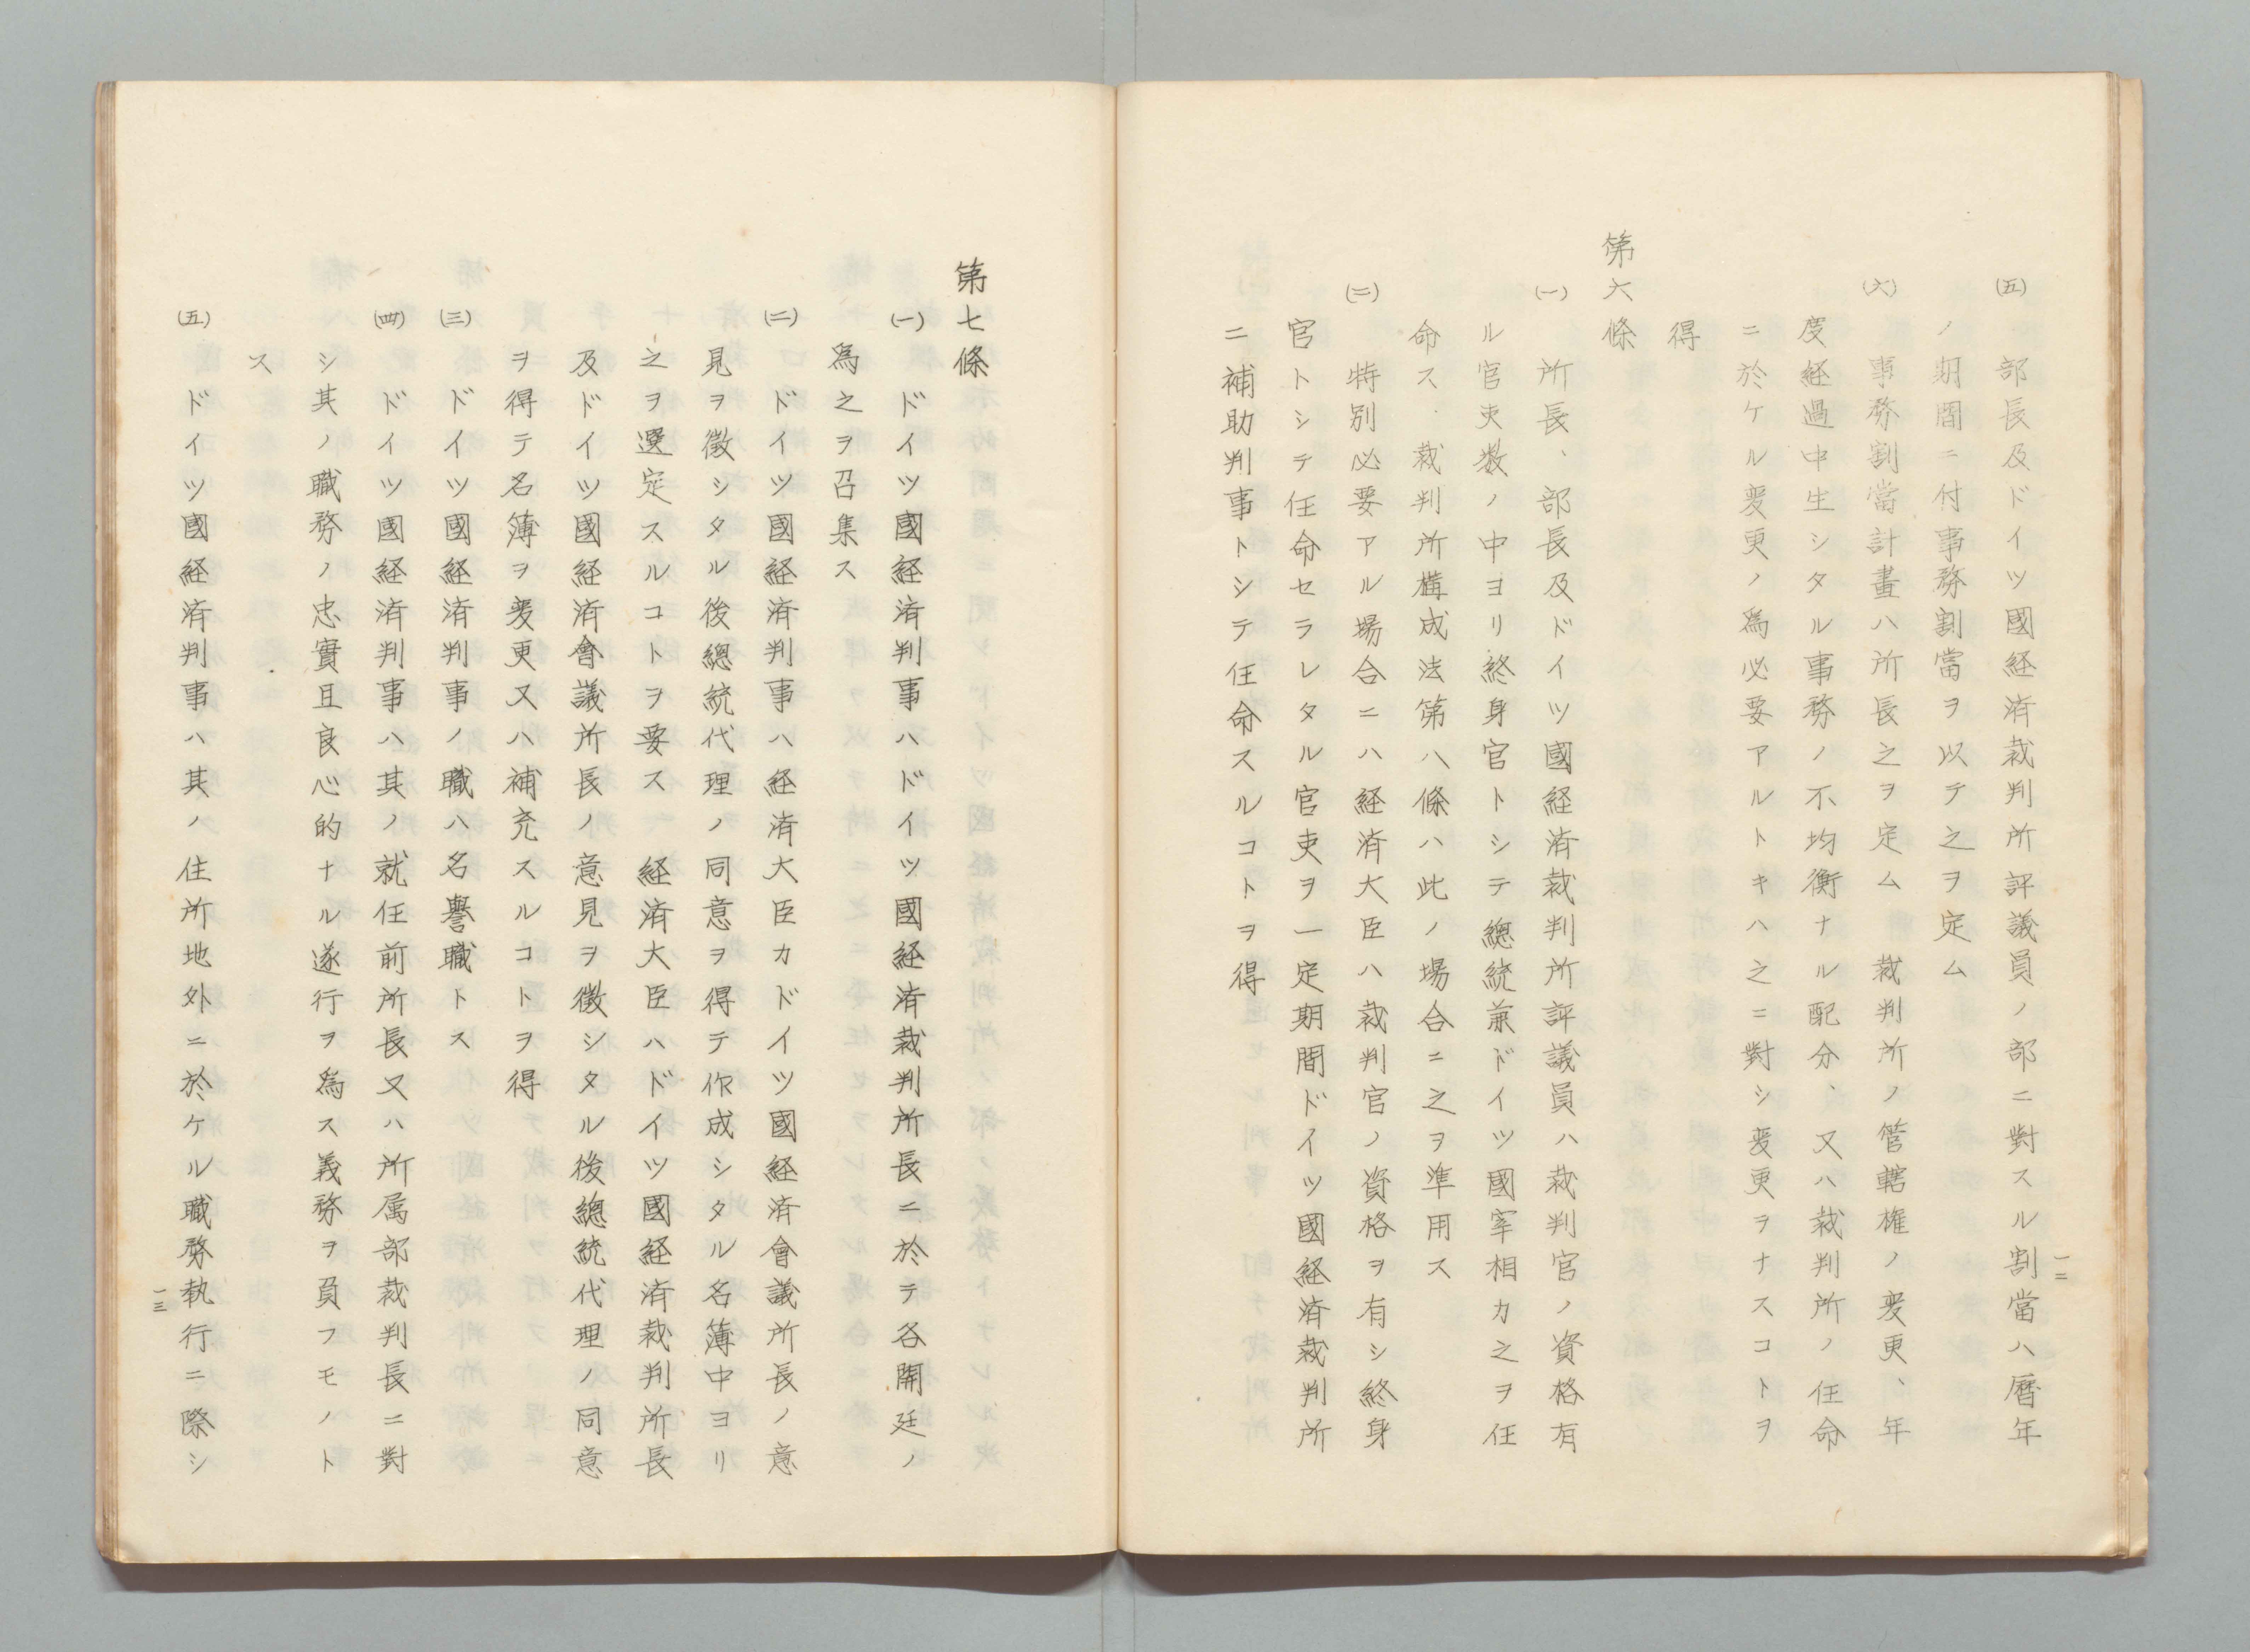 (五)　部長及ドイツ國経済裁判所評議員ノ部ニ對スル割當ハ曆年
ノ期間ニ付事務割當ヲ以テ之ヲ定ム
(六)　事務割當計畫ハ所長之ヲ定ム　裁判所ノ管轄権ノ変更、年
度経過中生シタル事務ノ不均衡ナル配分、又ハ裁判所ノ任命
ニ於ケル変更ノ爲必要アルトキハ之ニ對シ変更ヲナスコトヲ
得
第六條
(一)　所長、部長及ドイツ國経済裁判所評議員ハ裁判官ノ資格有
ル官吏数ノ中ヨリ終身官トシテ總統兼ドイツ國宰相カ之ヲ任
命ス　裁判所構成法第八條ハ此ノ場合ニ之ヲ準用ス
(二)　特別必要アル場合ニハ経済大臣ハ裁判官ノ資格ヲ有シ終身
官トシテ任命セラレタル官吏ヲ一定期間ドイツ國経済裁判所
ニ補助判事トシテ任命スルコトヲ得
一二
第七條
(一)　ドイツ國経済判事ハドイツ國経済裁判所長ニ於テ各開廷ノ
爲之ヲ召集ス
(二)　ドイツ國経済判事ハ経済大臣カドイツ國経済會議所長ノ意
見ヲ徴シタル後總統代理ノ同意ヲ得テ作成シタル名簿中ヨリ
之ヲ選定スルコトヲ要ス　経済大臣ハドイツ國経済裁判所長
及ドイツ國経済會議所長ノ意見ヲ徴シタル後總統代理ノ同意
ヲ得テ名簿ヲ変更又ハ補充スルコトヲ得
(三)　ドイツ國経済判事ノ職ハ名譽職トス
(四)　ドイツ國経済判事ハ其ノ就任前所長又ハ所属部裁判長ニ對
シ其ノ職務ノ忠實且良心的ナル遂行ヲ爲ス義務ヲ負フモノト
ス
(五)　ドイツ國経済判事ハ其ノ住所地外ニ於ケル職務執行ニ際シ
一三